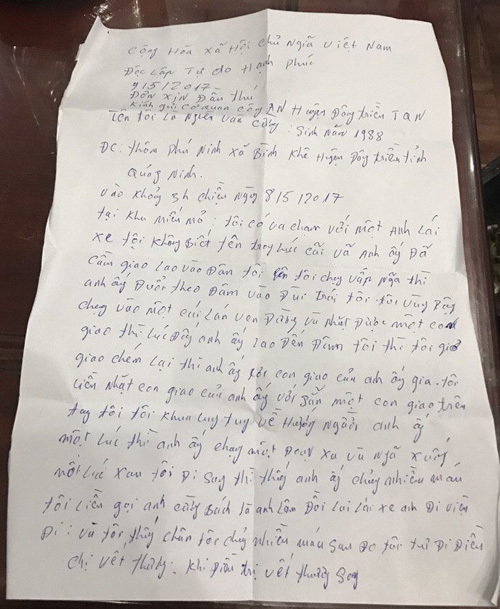 Cộng Hòa Xã Hội Chủ Nghĩa Việt Nam
Độc Lập Tự do Hạnh Phúc
9/5/2017
Đơn xin Đầu thú
Kính gửi cơ quan công AN Huyện Đông triều TQN
Tên tôi là Nguyễn Văn Cường : Sinh Năm 1988
ĐC: thôn Phú Ninh xã Bình Khê Huyện Đông triều tỉnh
Quảng Ninh.
Vào khoảng 3h chiều Ngày 8/5/2017
tại khu miếu mỏ : tôi có va chạm với một Anh lái
xe tôi không biết tên trong lúc cãi vã Anh ấy Đã
cầm giao lao vào Đâm tôi tôi chạy vấp Ngã thì
anh ấy Đuổi theo Đâm vào Đùi trái tôi tôi vùng Dậy
chạy vào một cái Lan ven Đường và Nhặt Được một con
giao thì lúc Đấy anh ấy lao Đến Đâm tôi thì tôi giơ
giao chem Lại thì anh ấy rơi con giao của anh ấy gia. tôi
Liền Nhặt con giao của anh ấy với sẵn một con giao trên
tay tôi tôi khua lung tung về Hướng Người anh ấy
một Lúc thì anh ấy chạy một Đoạn xa và Ngã xuống
một Lúc sau tôi Đi sang thì thấy anh ấy chảy nhiều máu
tôi liền gọi anh cùng Bách là anh Lâm Đồi Lai Lái xe anh Đi viện
Đi : và tôi thấy chân tôi chảy nhiều máu sau Đó tôi tự Đi Điều
chị vết thương. Khi Điều trị vết thương song